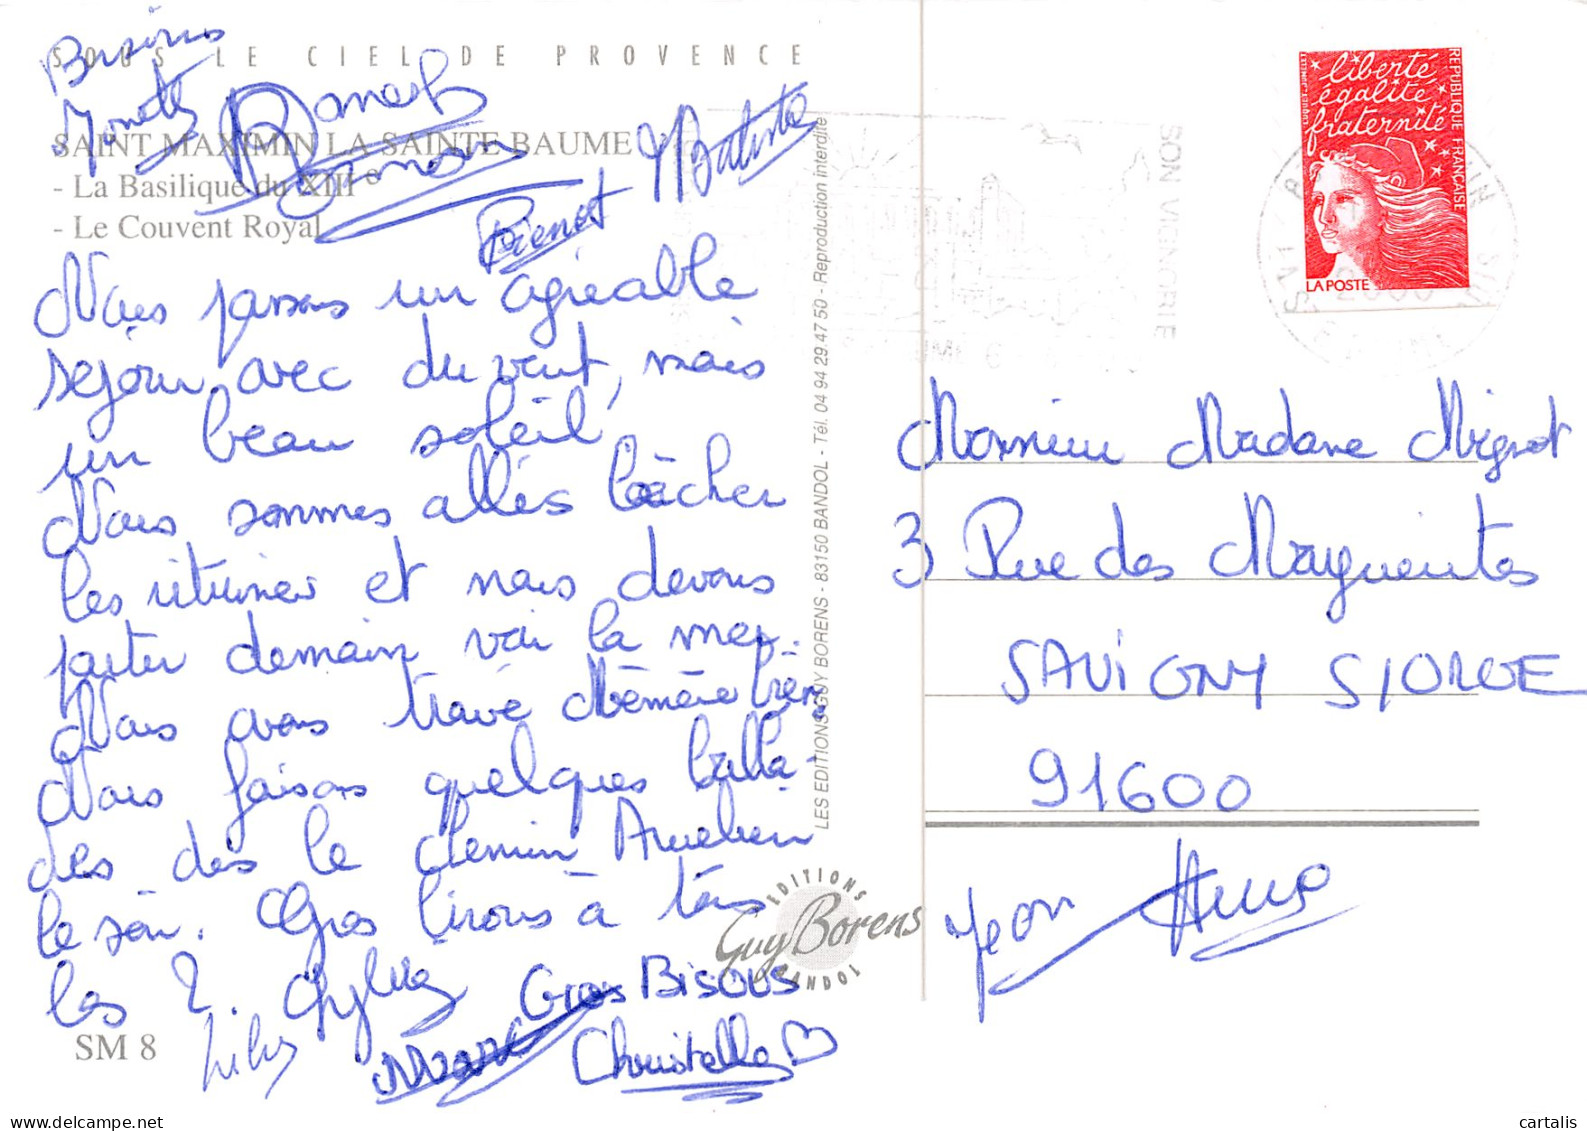 SOUS LE CIEL DE PROVENCE
Bisous
Ginette
SAINT MAXIMIN LA SAINTE BAUME
- La Basilique du XIII e
- Le Couvent Royal
Batiste
Nous passons un agréable
séjour avec du vent, mais
un beau soleil,
Nous sommes allés lècher
les vitrines et nous devons
partir demain voir la mer.
Nous avons trouvé Mémère bien,
Nous faisons quelques balla-
des dès le chemin Aurelien
le soir. Gros bisous à tous
les 2.
Gros BISOUS
Christelle
SM 8
LES EDITIONS GUY BORENS - 83150 BANDOL - Tél. 04 94 29 47 50 - Reproduction interdite
EDITIONS
Guy Borens
BANDOL
SON VIGNOBLE
2000
liberté
égalité
fraternité
REPUBLIQUE FRANÇAISE
LA POSTE
Monsieur Madame Mignot
3 Rue des Marguerites
SAVIGNY S/ORGE
91600
Jean